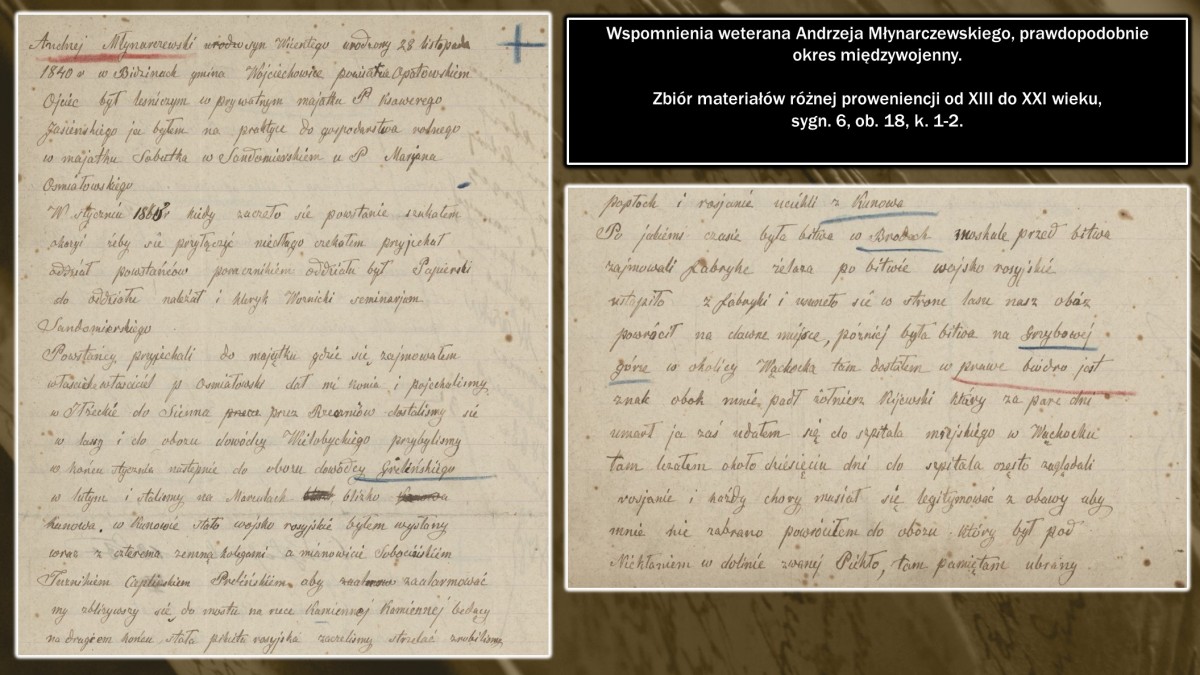 Andrzej Młynarczewski urodzo syn Wicentego urodzony 28 listopada
1840 r w Bidzinach gmina Wojciechowice powiatu Opatowskiem
Ojciec był leśniczym w prywatnym majątku P Ksawerego
Jasieńskiego ja byłem na praktyce do gospodarstwa rolnego
w majątku Sobutka w Sandomierskiem u P Marjana
Osmiałowskiego
W styczniu 1863r kiedy zaczeło sie powstanie szukałem
okazyi żeby się przyłączyć niedługo czekałem przyjechał
oddział powstańców porucznikiem oddziału był Papierski
do oddziału należał i kleryk Wornicki seminarjum
Sandomierskiego
Powstańcy przyjechali do majątku gdzie się zajmowałem
właściciel p Osmiałowski dał mi konia i pojechaliśmy
w Itżeckie do Sienna przez dostaliśmy sie
w lasy i do obozu dowódcy przybylismy
w końcu stycznia następnie do obozu dowódcy Grelińskiego
w lutym i staliśmy na Marculach blizko
Kunowa. w Kunowie stało wojsko rosyjskie byłem wysłany
wraz z czterema zemną kolegami a mianowicie Sobocińskiem
Turnikiem Prelińskiem aby zaalarmować
my zbliżywszy się do mostu na rzece Kamiennej Kamiennej będący
na drugiem końcu stała pikieta rosyjska zaczeliśmy strzelać zrobiliśmy
Wspomnienia weterana Andrzeja Młynarczewskiego, prawdopodobnie
okres międzywojenny.
Zbiór materiałów różnej proweniencji od XIII do XXI wieku,
sygn. 6, ob. 18, k. 1-2.
popłoch i rosjanie uciekli z Kunowa
Po jakiems czasie była bitwa w Brodach moskale przed bitwa
zajmowali fabryke żelaza po bitwie wojsko rosyjskie
ustąpiło z fabryki i w strone lasu nasz obóz
powrócił na dawne miejsce, później była bitwa na Grzybowej
górze w okolicy Wąchocka tam dostałem w prawe biodro jest
znak obok mnie padł żołnierz Kijewski który za pare dni
umarł ja zaś udałem się do szpitala miejskiego w Wąchocku
tam leżałem około dziesięciu dni do szpitala często zaglądali
rosjanie i każdy chory musiał się legitymować z obawy aby
mnie nie zabrano powróciłem do obozu który był pod
Niekłaniem w dolinie zwanej Piekło, tam pamiętam ubrany